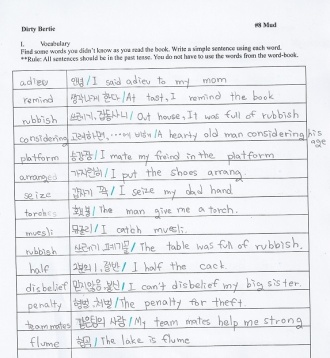 Dirty Bertie
#8 Mud
I. Vocabulary
Find some words you didn't know as you read the book. Write a simple sentence using each word.
**Rule: All sentences should be in the past tense. You do not have to use the words from the word-book.
adieu 안녕 / I said adieu to my mom
remind 생각나게 한다 / At tast, I remind the book
rubbish 쓰레기, / Out house, It was full of rubbish
considering 고려하면, / A hearty old man considering his age
platform 승강장 / I mate my freind in the platform
arranges 가지런히 / I put the shoes arrang.
seize 갑자기 꽉 / I seize my dad hand
torches 횃불 / The man give me a torch.
muesli / I catch muesli.
rubbish 쓰레기 / The table was full of rubbish.
half 2분의 1, 절반 / I half the cack.
disbelief 믿기않음 불신 / I can't disbelief my big sister.
penalty 형벌, 처벌 / The penalty for theft.
teammates 사람 / My team mates help me strong
flume / The lake is flume